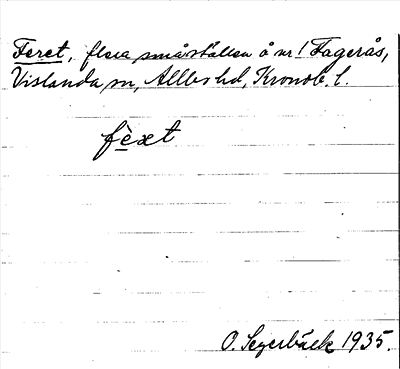 Feret, flera småställen å nr 1 Fagerås,
Vislanda sn, Allbo hd, Kronob. l.
fèxt
O. Segerbäck 1935.